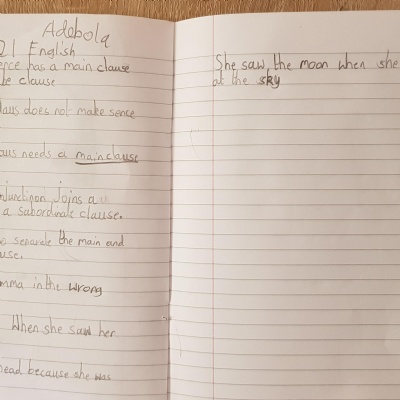 Adebola
21 English
ence has a main clause
te clause
laus does not make sence
laus needs a mainclause
njunction Joins a
a subordinate clause.
o separate the main and
use.
mma in the wrong
When she saw her
head because she was
She saw the moon when she
at the sky